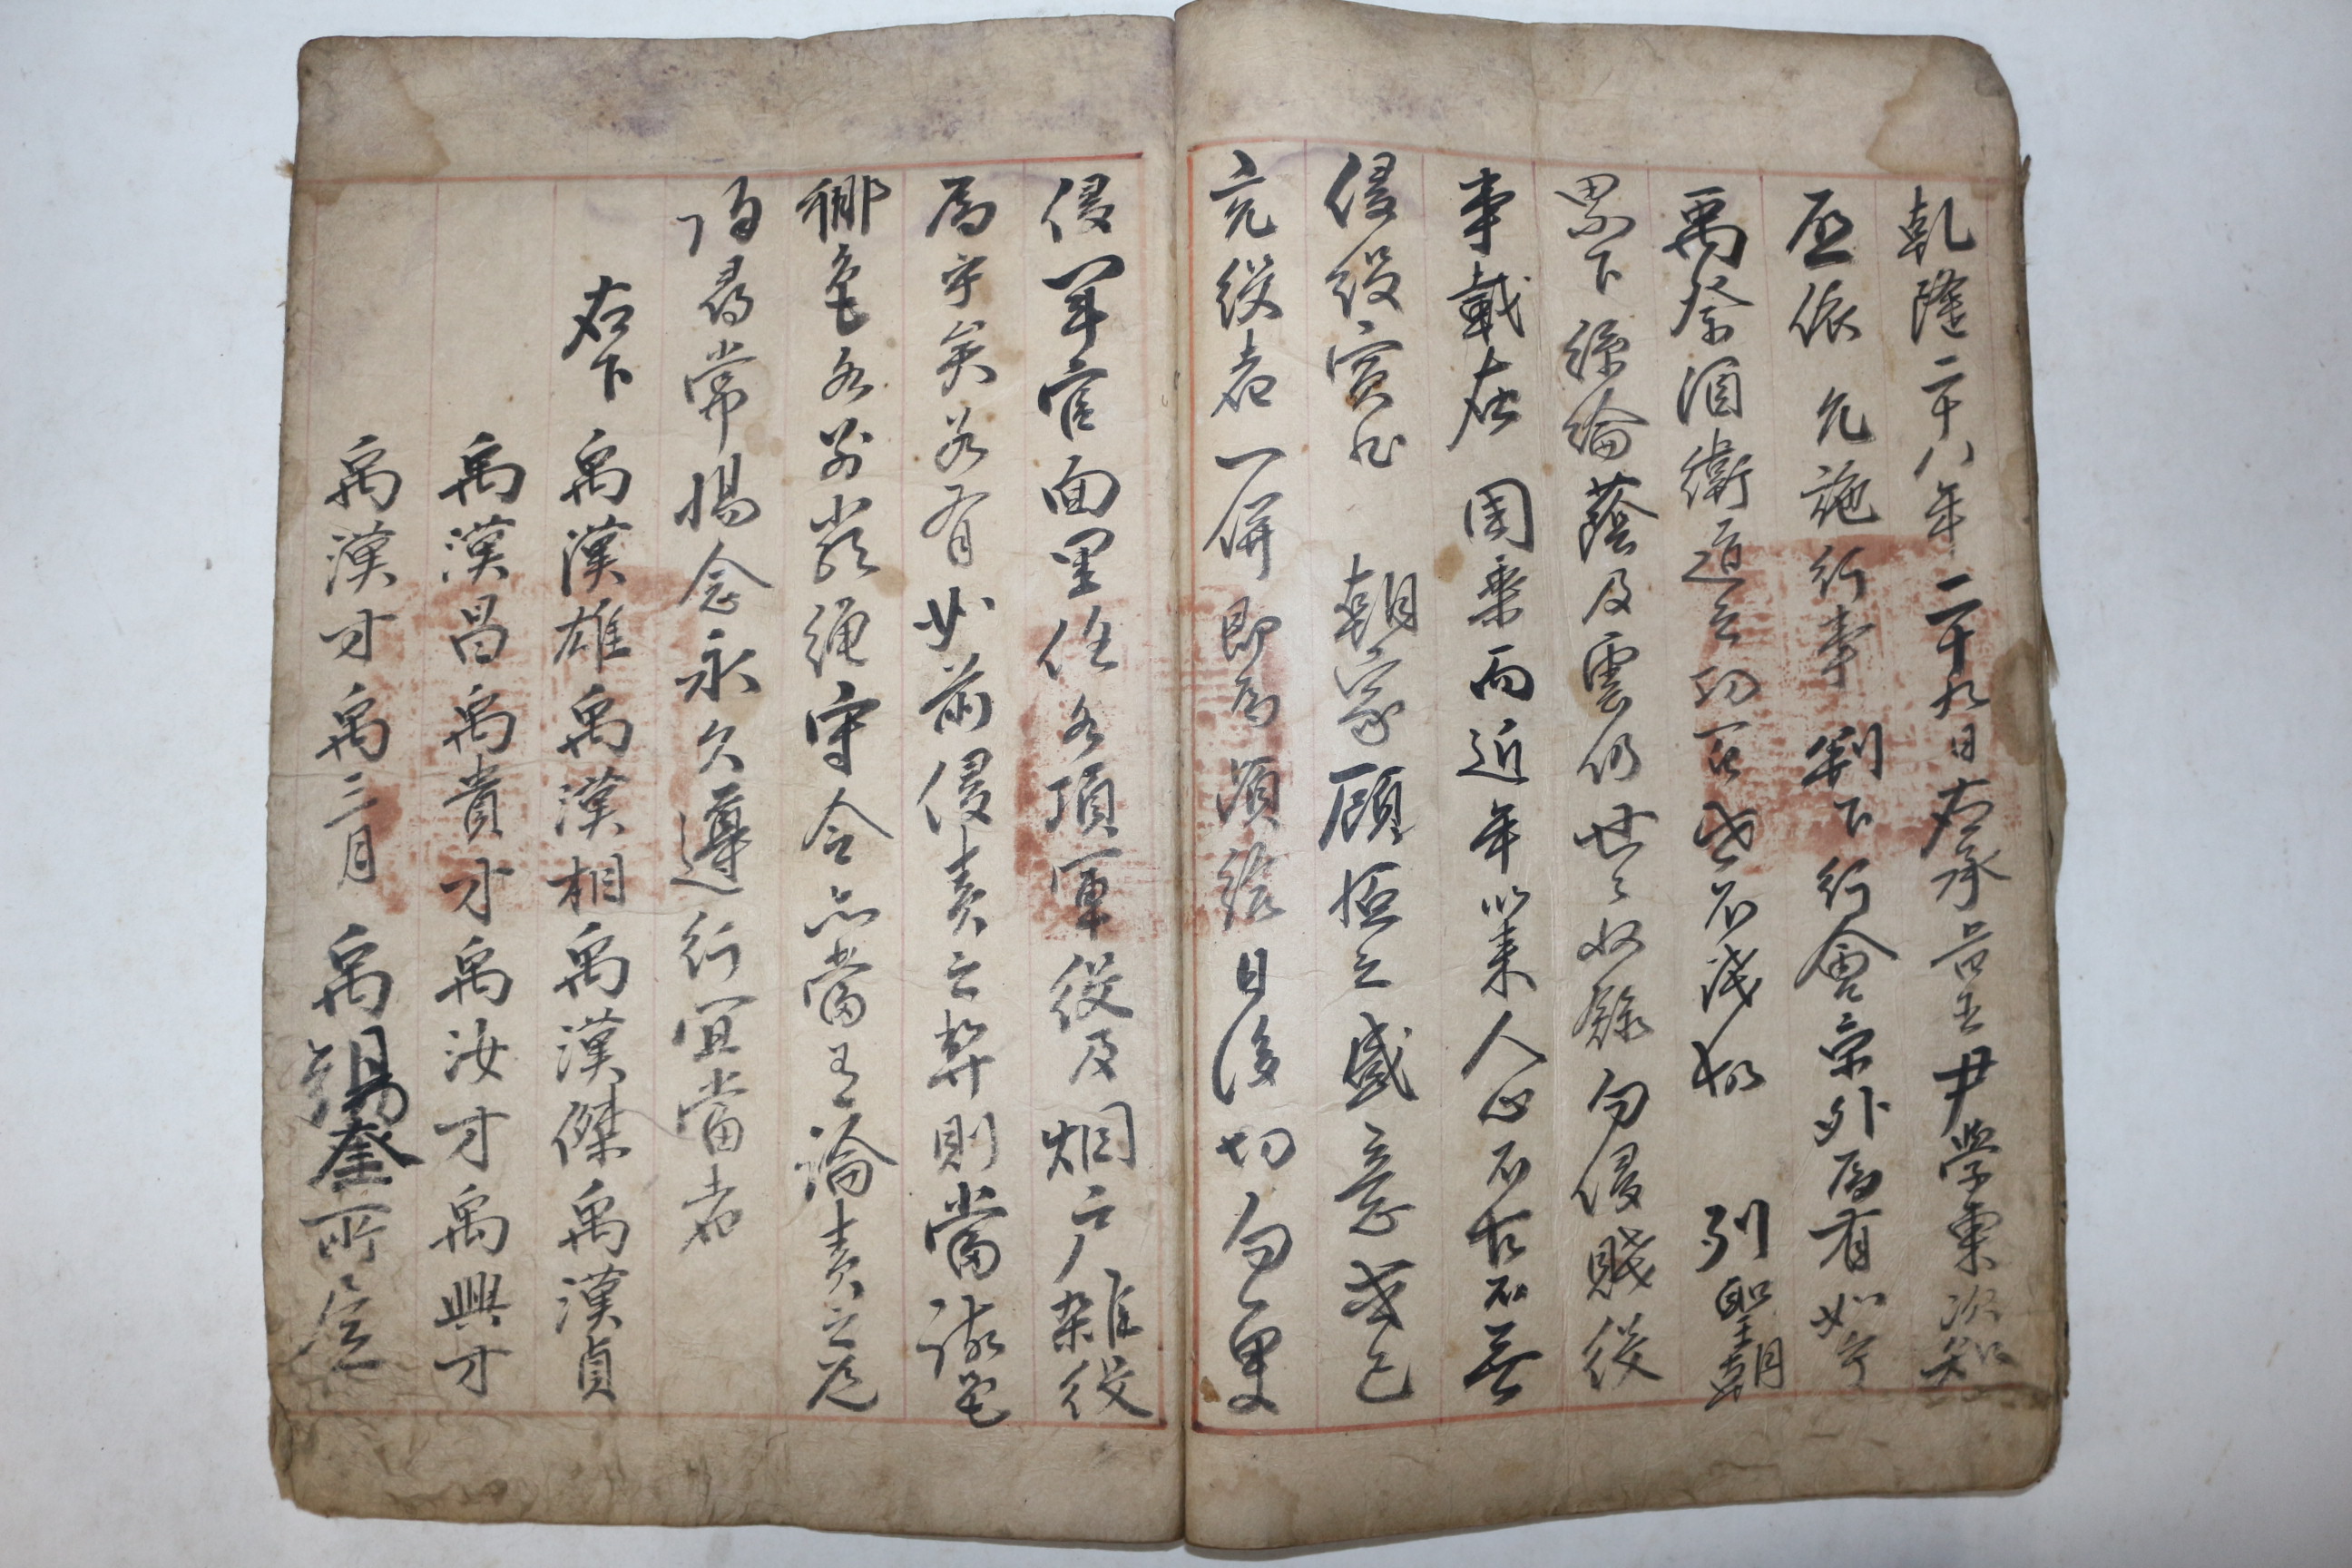 乾隆二十八年二十九日右承旨臣尹學東次知
啓依允施行事判下行會京外爲有如乎
禹祭酒衛道之功百世不泯故列聖朝
累下絲綸蔭及雲仍世之奴錄勿侵賤役
事載在國乘而近年以來人心不古不無
侵役實非朝家顧恤之盛意或已
充役者一倂卽爲頉給日後切勿更
侵是官面里任各頂軍役及烟戶雜役
爲乎矣若有如前侵責之弊則當該色
鄕色各別嚴繩守令亦當有論責之
尋常惕念永久遵行宜當者
右下禹漢雄禹漢相禹漢傑禹漢貞
禹漢昌禹貴才禹汝才禹興才
禹漢才禹三月禹錫奎所居